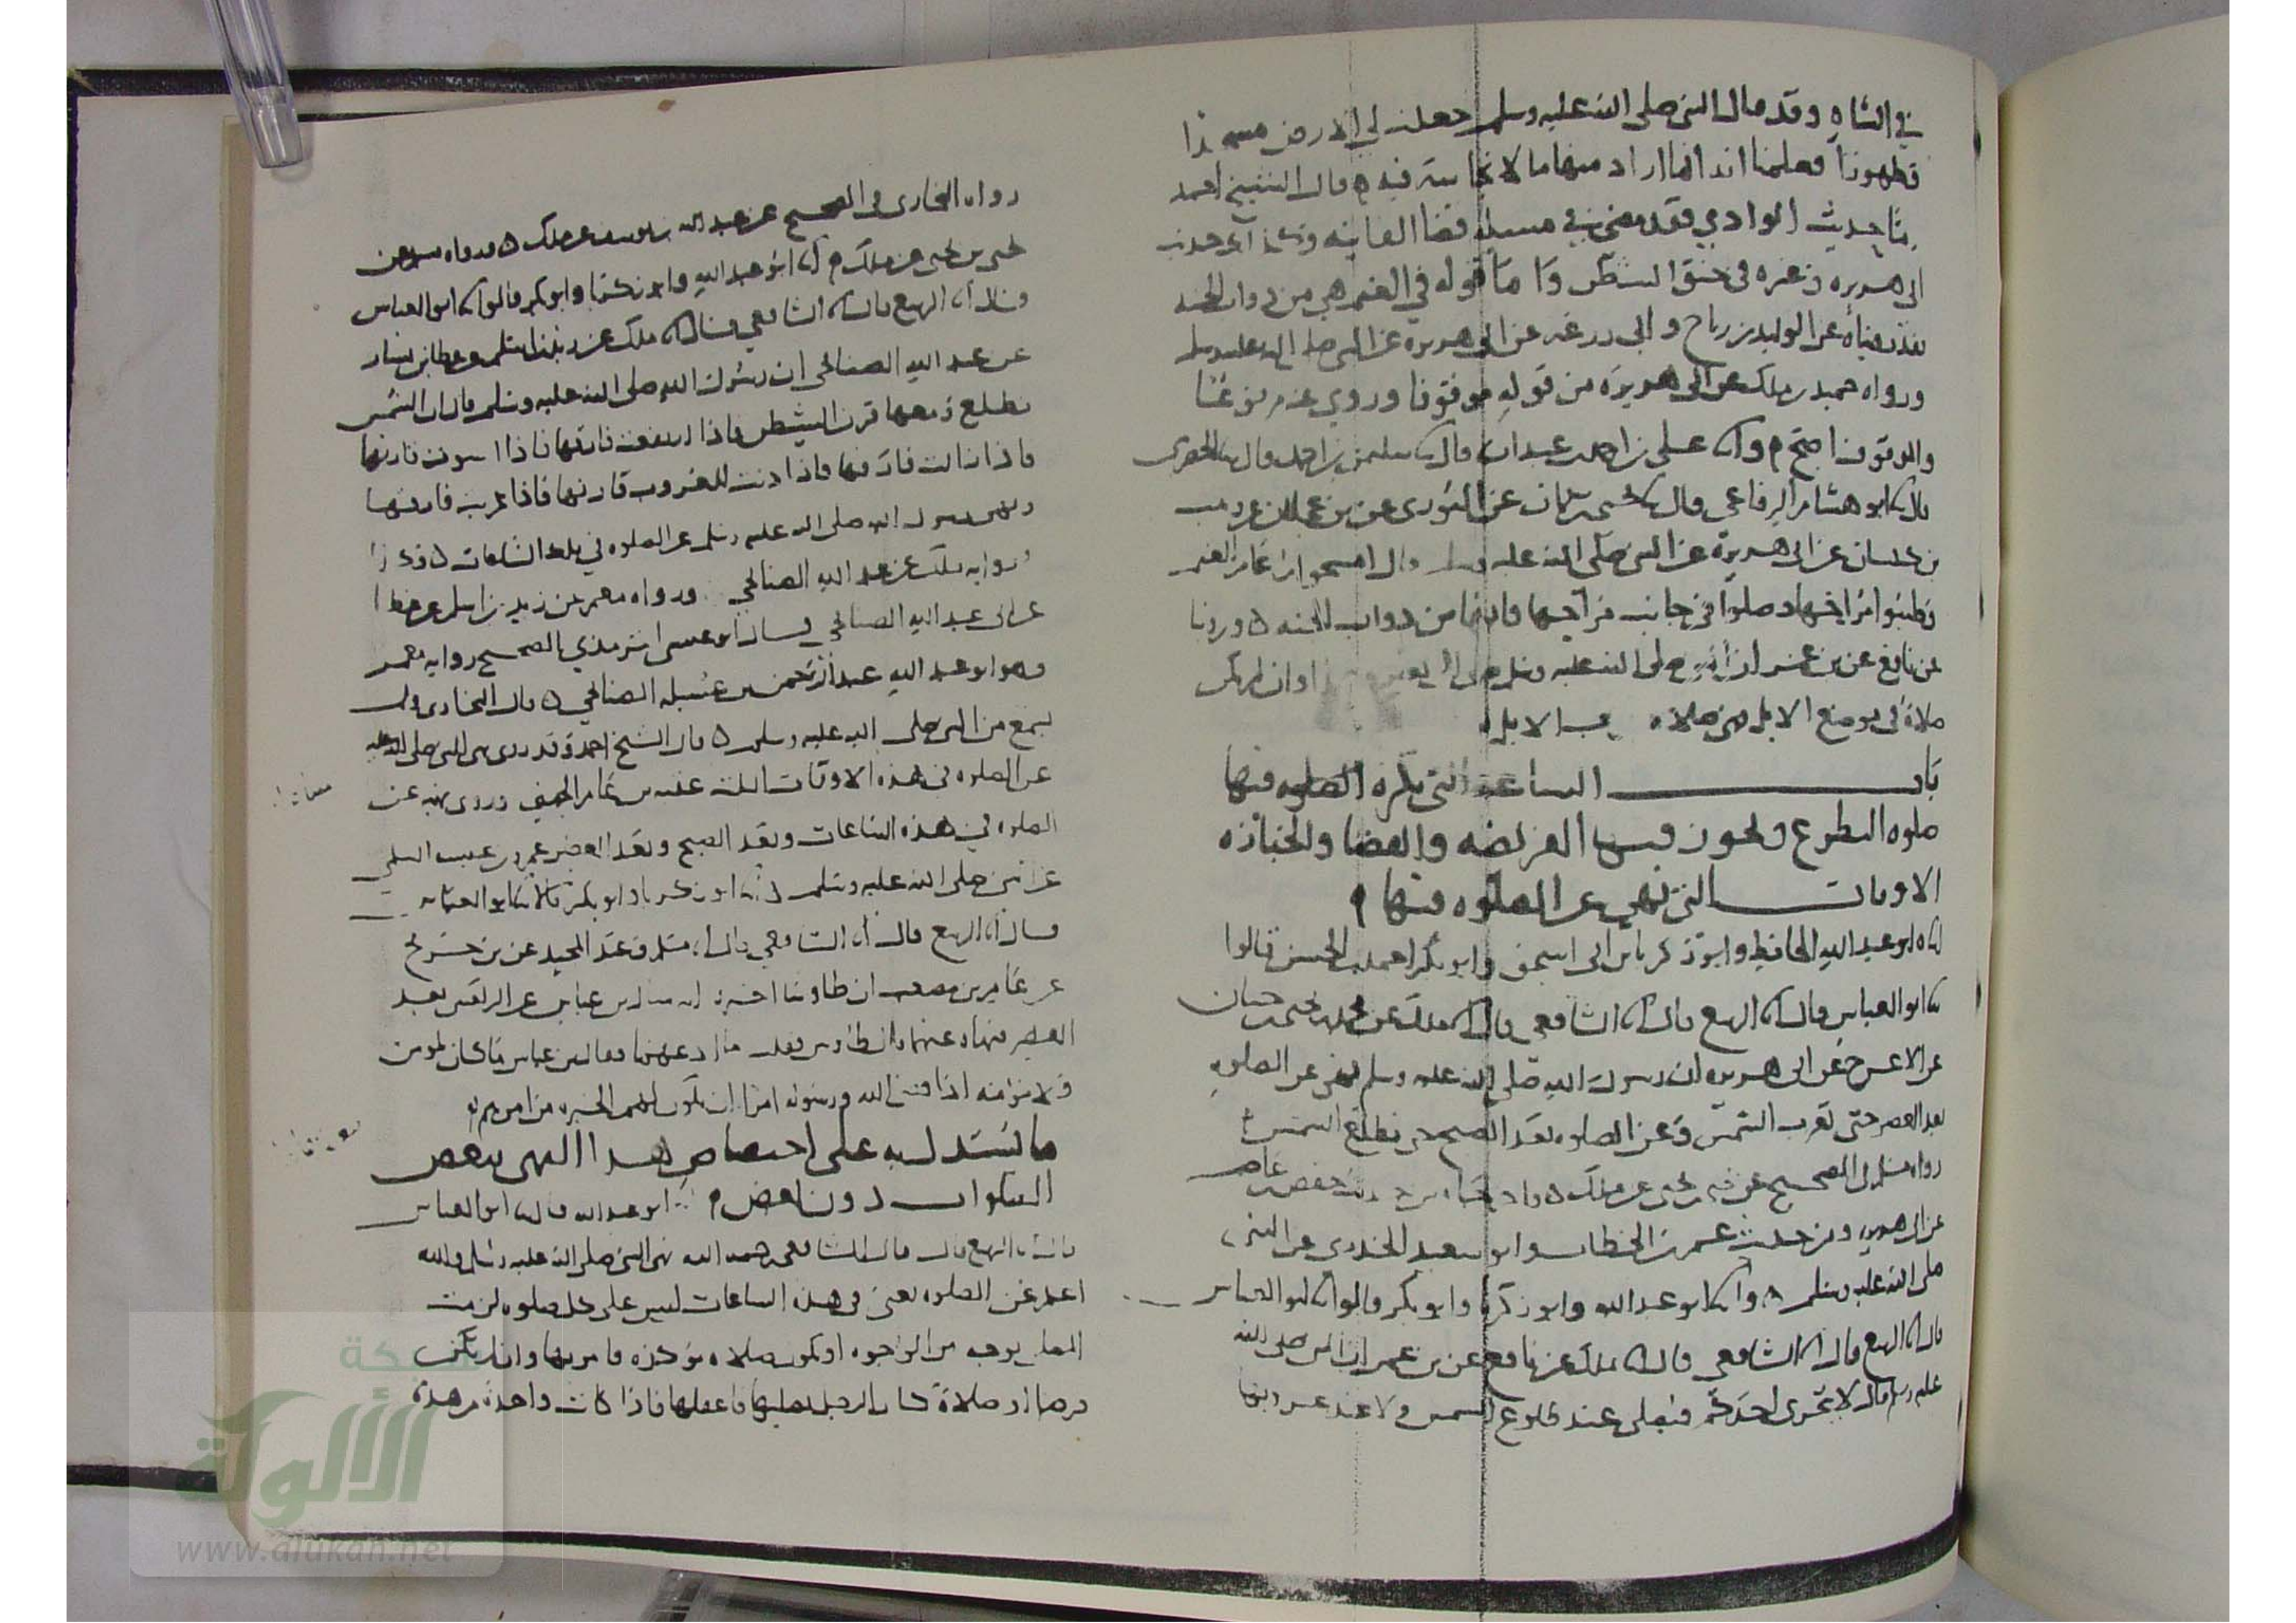 في الشاه وقد قال النبي صلى الله عليه وسلم جعلت لي الارض مسجدا
وطهورا فعلمنا انه انما اراد منها ما لا نجاسة فيه قال الشيخ احمد
حديث الوادي فقد مضى في مسله قضا الفايته وحديث
ابي هريره وغيره في خنق الشيطان واما قوله في الغنم هي من دواب الجنه
فقد رويناه عن الوليد بن رباح وابي زرعه عن ابي هريرة عن النبي صلى الله عليه وسلم
ورواه حميد بن ملك عن ابي هريرة من قوله موقوفا وروي عنه مرفوعا
والموقوف اصح علي بن احمد بن عبدان قال سليمن بن احمد قال الحضرمي
قال ابو هشام الرفاعي قال يحيى بن يمان عن الثوري عن
بن كيسان عن ابي هريرة عن النبي صلى الله عليه وسلم قال امسحوا رغام الغنم
وطيبوا مراحها وصلوا في جانب مراحها فانها من دواب الجنه وروينا
عن نافع عن بن عمر ان النبي صلى الله عليه وسلم وان لم يكن
صلاة في موضع الابل الابل
باب الساعة التي تكره الصلوه فيها
صلوه التطوع ويجوز فيها الفريضه والقضا والجنازه
الاوقات التي نهي عن الصلوه فيها
ابو عبد الله الحافظ وابو زكريا بن ابي اسحق وابو بكر احمد بن الحسن قالوا
ابو العباس قال الربيع قال الشافعي قال ملك عن محمد بن يحيى بن حبان
عن الاعرج عن ابي هريره ان رسول الله صلى الله عليه وسلم نهى عن الصلوه
بعد العصر حتى تغرب الشمس وعن الصلوه بعد الصبح حتى تطلع الشمس
رواه مسلم في الصحيح عن يحيى بن يحيى عن ملك حفص بن عاصم
عن ابي هريره ومن حديث عمر بن الخطاب وابو سعيد الخدري عن النبي
صلى الله عليه وسلم ابو عبد الله وابو زكريا وابو بكر قالوا ابو العباس
قال الربيع قال الشافعي قال ملك عن نافع عن بن عمر ان النبي صلى الله
عليه وسلم قال لا يتحرى احدكم فيصلي عند طلوع الشمس ولا عند غروبها
رواه البخاري في الصحيح عن عبد الله بن يوسف عن ملك ورواه مسلم عن
يحيى بن يحيى عن ملك ابو عبد الله وابو زكريا وابو بكر قالوا ابو العباس
قال الربيع قال الشافعي قال ملك عن زيد بن اسلم عن عطا بن يسار
عن عبد الله الصنابحي ان رسول الله صلى الله عليه وسلم قال ان الشمس
تطلع ومعها قرن الشيطن فاذا ارتفعت فارقها فاذا استوت قارنها
فاذا زالت فارقها فاذا دنت للغروب قارنها فاذا غربت فارقها
ونهى رسول الله صلى الله عليه وسلم عن الصلوه في تلك الساعات وكذا
رواه ملك عن عبد الله الصنابحي ورواه معمر عن زيد بن اسلم عن عطا
عن ابي عبد الله الصنابحي قال ابو عيسى الترمذي الصحيح رواية معمر
وهو ابو عبد الله عبد الرحمن بن عسيله الصنابحي قال البخاري ولم
يسمع من النبي صلى الله عليه وسلم قال الشيخ احمد وقد روى نهي النبي صلى الله عليه
عن الصلوه في هذه الاوقات الثلث عقبه بن عامر الجهني وروى نهيه عن
الصلوه في هذه الساعات وبعد الصبح وبعد العصر عمرو بن عبسه السلمي
عن النبي صلى الله عليه وسلم ابو زكريا وابو بكر قالا ابو العباس
قال الربيع قال الشافعي قال مسلم وعبد المجيد عن بن جريج
عن عامر بن مصعب ان طاوسا اخبره انه سال بن عباس عن الركعتين بعد
العصر فنهاه عنهما قال طاوس فقلت ما ادعهما فقال بن عباس ما كان لمومن
ولا مؤمنه اذا قضى الله ورسوله امرا ان يكون لهم الخيره من امرهم
ما يستدل به على اختصاص هذا النهي ببعض
الصلوات دون بعض ابو عبد الله قال ابو العباس
قال الربيع قال قال الشافعي رحمه الله نهي النبي صلى الله عليه وسلم والله
اعلم عن الصلوه يعني في هذه الساعات ليس على كل صلوه لزمت
المصلي بوجه من الوجوه او تكون صلاة مؤكده فامر بها وان لم يكن
فرضا او صلاة كان الرجل يصليها فاغفلها فاذا كانت واحدة من هذه
www.alukah.net
شبكة
الألوكة